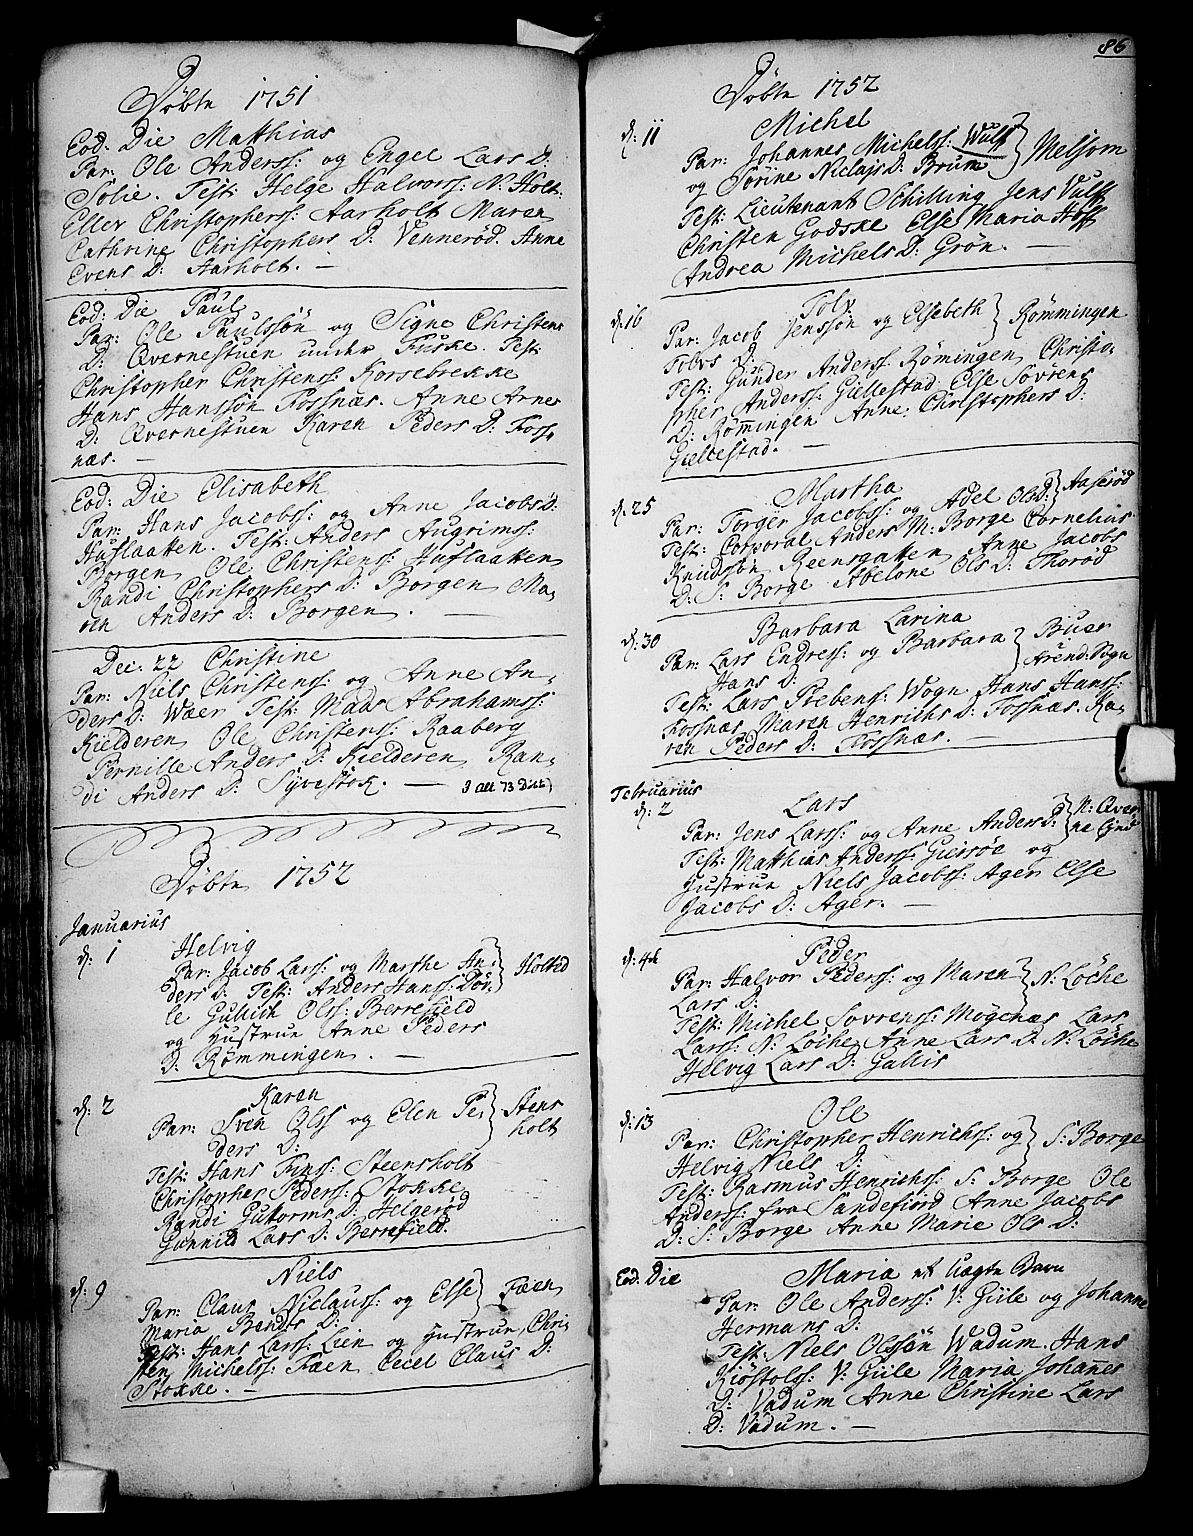 Döbte 1751
Eod: Die Matthias
Par: Ole Anderss: og Engel Lars D:
Solie. Test: Helge Halvorss: N: Holt.
Ellev Christopherss: Aarholt Maren
Cathrine Christophers D: Vennerød. Anne
Evens D: Aarholt. —
Eod: Die Paul
Par: Ole Paulssön og Signe Christens
D: Qvernestuen under Fuske. Test:
Christopher Christenss: Korsebrekke
Hans Hanssön Fossnæs. Anne Arnes
D: Qvernestuen Karen Peders D: Foss-
næs. —
Eod: Die Elisabeth
Par: Hans Jacobss: og Anne Jacobs D:
Huslaatten. Test: Anders Augrimss:
Borgen Ole Christenss: Huslaatten
Randi Christophers D: Borgen Ma-
ren Anders D: Borgen. —
Dec: 22 Christine
Par: Niels Christenss: og Anne An-
ders D: Wæer Test: Mads Abrahamss:
Kielderen Ole Christenss: Raaberg
Pernille Anders D: Kielderen Ran-
di Anders D: Syvestok. — J alt 73 Döbte
Döbte 1752
Januarius
d: 1 Helvig
Par: Jacob Larss: og Marthe An- Holted
ders D: Test: Anders Hanss: Döv-
le Gullich Olss: Berrefield
og Hustrue Anne Peders
D: Rømmingen. —
d: 2 Karen
Par: Sven Olss og Elen Pe- Stens
ders D: holt
Test: Hans Finss: Steensholt
Christopher Pederss: Stokke
Randi Guttorms D: Helgerød
Gunnild Lars D: Berrefield.
d: 9 Niels
Par: Claus Niclauss: og Else Faen
Maria Bendts D:
Test: Hans Larss: Lein og Hustrue, Chri-
sten Michelss: Faen Cecel Claus D:
Stokke. —
86
Döbte 1752
d: 11 Michel
Par: Johannes Michelss: Wulf Melsom
og Sørine Niclajs D: Bruun
Test: Lieutenant Schilling Jens Vulff
Christen Godske Else Maria Hoff
Andrea Michels D: Grön. —
d: 16 Tolv
Par: Jacob Jenssön og Elsebeth Rømmingen
Tolvs D:
Test: Gunder Anderss: Rømingen Christo-
pher Anderss: Gullestad. Else Sövrens
D: Rømmingen Anne Christophers D:
Gullestad. —
d: 25 Martha
Par: Torger Jacobss: og Adel Ols D: Aaserød
Test: Corporal Anders M: Borge Cornelius
Knudssön Reensgatten Anne Jacobs
D: S: Borge Abelone Ols D: Thorød
d: 30 Barbara Larina
Par: Lars Endress: og Barbara Buer
Hans D: Arend: Sogn
Test: Lars Prebenss: Wogn Hans Hanss:
Fossnæs Maren Henrichs D: Fossnæs. Ka-
ren Peders D: Fossnæs. —
Februarius
d: 2 Lars
Par: Jens Larss: og Anne Anders D: N: Qver-
Test: Matthias Anderss: Gierröe og
Hustrue Niels Jacobss: Ager Else
Jacobs D: Ager. —
d: 4 Peder
Par: Halvor Pederss: og Maren N: Löche
Lars D:
Test: Michel Sövrenss: Mögenæs Lars
Larss: N: Löche Anne Lars D: N: Löche
Helvig Lars D: Gallis
d: 13 Ole
Par: Christopher Henrichss: og S: Borge
Helvig Niels D:
Test: Rasmus Henrichss: S: Borge Ole
Anderss: fra Sandefiord Anne Jacobs
D: S: Borge Anne Marie Ols D:
Eod: Die Maria et Uægte Barn
Par: Ole Anderss: V: Giile og Johanne
Hermans D:
Test: Niels Olssön Wadum. Hans
Kiöstolss: V: Giile Maria Johannes
D: Vadum Anne Christine Lars
D: Vadum. —